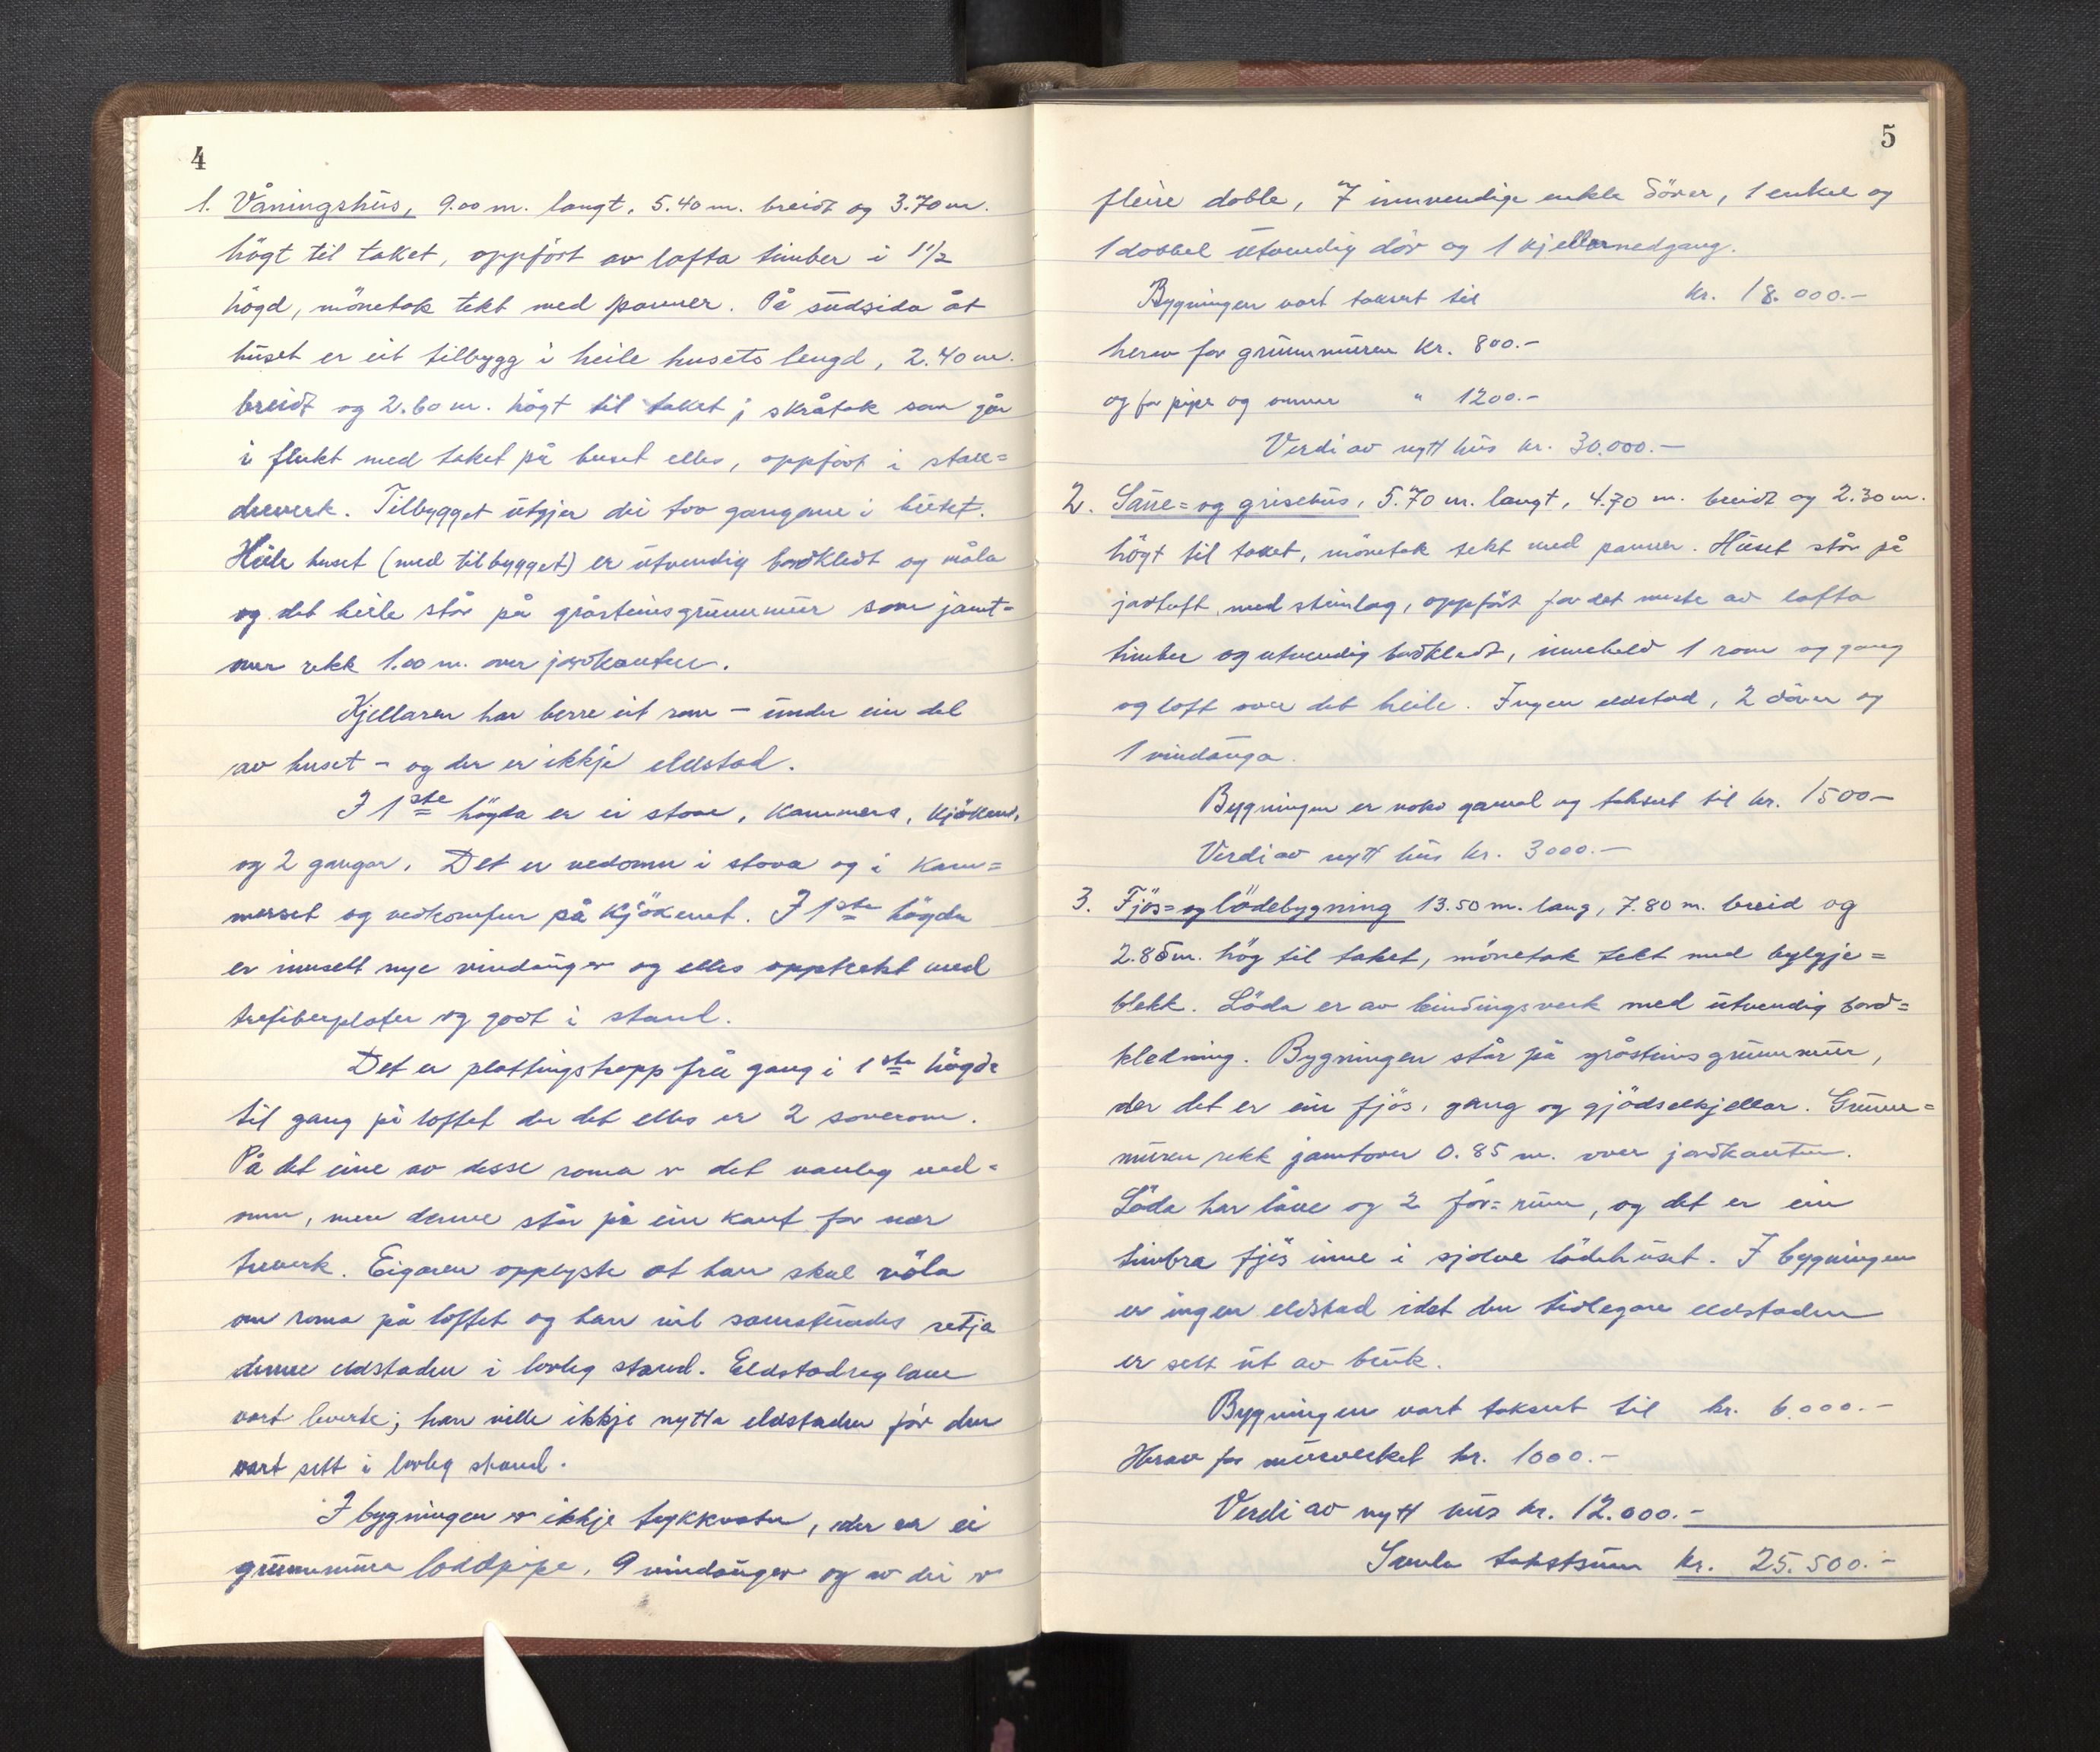 4
1. Våningshus, 9.00 m. langt, 5.40 m. breidt og 3.70 m.
högt til taket, oppfört av lafta timber i 1 1/2
högd, mönetak tekt med panner. På sudsida åt
huset er eit tilbygg i heile husets lengd, 2.40 m.
breidt og 2.60 m. högt til taket; skråtak som går
i flukt med taket på huset elles, oppfört i stan=
dverk. Tilbygget utgjer dei tvo gangane i huset.
Heile huset (med tilbygget) er utvendig bordkledt og måla
og det heile står på gråsteinsgrunnmur som jamt-
over rekk 1.00 m. over jordkanten.
Kjellaren har berre eit rom - under ein del
av huset - og der er ikkje eldstad.
I 1ste högda er ei stove, kammers, kjöken,
og 2 gangar. Det er vedomn i stova og i kam=
merset og vedkomfur på kjökenet. I 1ste högda
er innsett nye vindauger og elles opptrekt med
trefiberplater og godt i stand.
Det er plattingstrapp frå gang i 1ste högda
til gang på loftet der det elles er 2 soverom.
På det eine av desse roma er det vanleg ved-
omn, men denne står på ein kant for nær
treverk. Eigaren opplyste at han skal völa
om roma på loftet og han vil samstundes setja
denne eldstaden i lovleg stand. Eldstadreglane
vart leverte; han ville ikkje nytta eldstaden för den
vart sett i lovleg stand.
I bygningen er ikkje trykkvatn, der er ei
grunnmura loddpipe, 9 vindauger og av dei er
5
fleire doble, 7 innvendige enkle dörer, 1 enkel og
1 dobbel utvendig dör og 1 kjellarnedgang.
Bygningen vart taksert til kr. 18.000.-
herav for grunnmuren kr. 800.-
og for pipe og omnar " 1200.-
Verdi av nytt hus kr. 30.000.-
2. Saue= og grisehus, 5.70 m. langt, 4.70 m. breidt og 2.30 m.
högt til taket, mönetak tekt med panner. Huset står på
jordtuft med steinlag, oppfört for det meste av lafta
timber og utvendig bordkledt, inneheld 1 rom og gang
og loft over det heile. Ingen eldstad, 2 dörer og
1 vindauga.
Bygningen er noko gamal og taksert til kr. 1500-
Verdi av nytt hus kr. 3000.-
3. Fjös= og lödebygning 13.50 m. lang, 7.80 m. breid og
2.85 m. hög til taket, mönetak tekt med bylgje=
blekk. Löda er av bindingsverk med utvendig bord=
kledning. Bygningen står på gråsteinsgrunnmur,
der det er ein fjös, gang og gjödselkjellar. Grunn=
muren rekk jamtover 0.85 m. over jordkanten.
Löda har låve og 2 for=rum, og det er ein
timbra fjös inne i sjölve lödehuset. I bygningen
er ingen eldstad idet den tidlegare eldstaden
er sett ut av bruk.
Bygningen vart taksert til kr. 6.000.-
Herav for murverket kr. 1000.-
Verdi av nytt hus kr. 12.000.-
Samla takstsum kr. 25.500.-